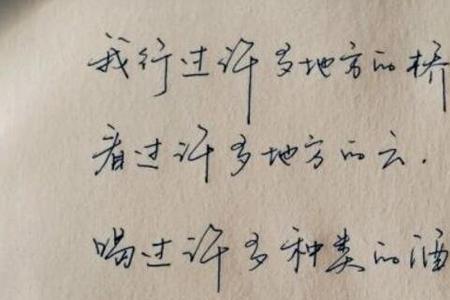 我行过许多地方的桥
看过许多地方的云.
喝过许多种类的酒